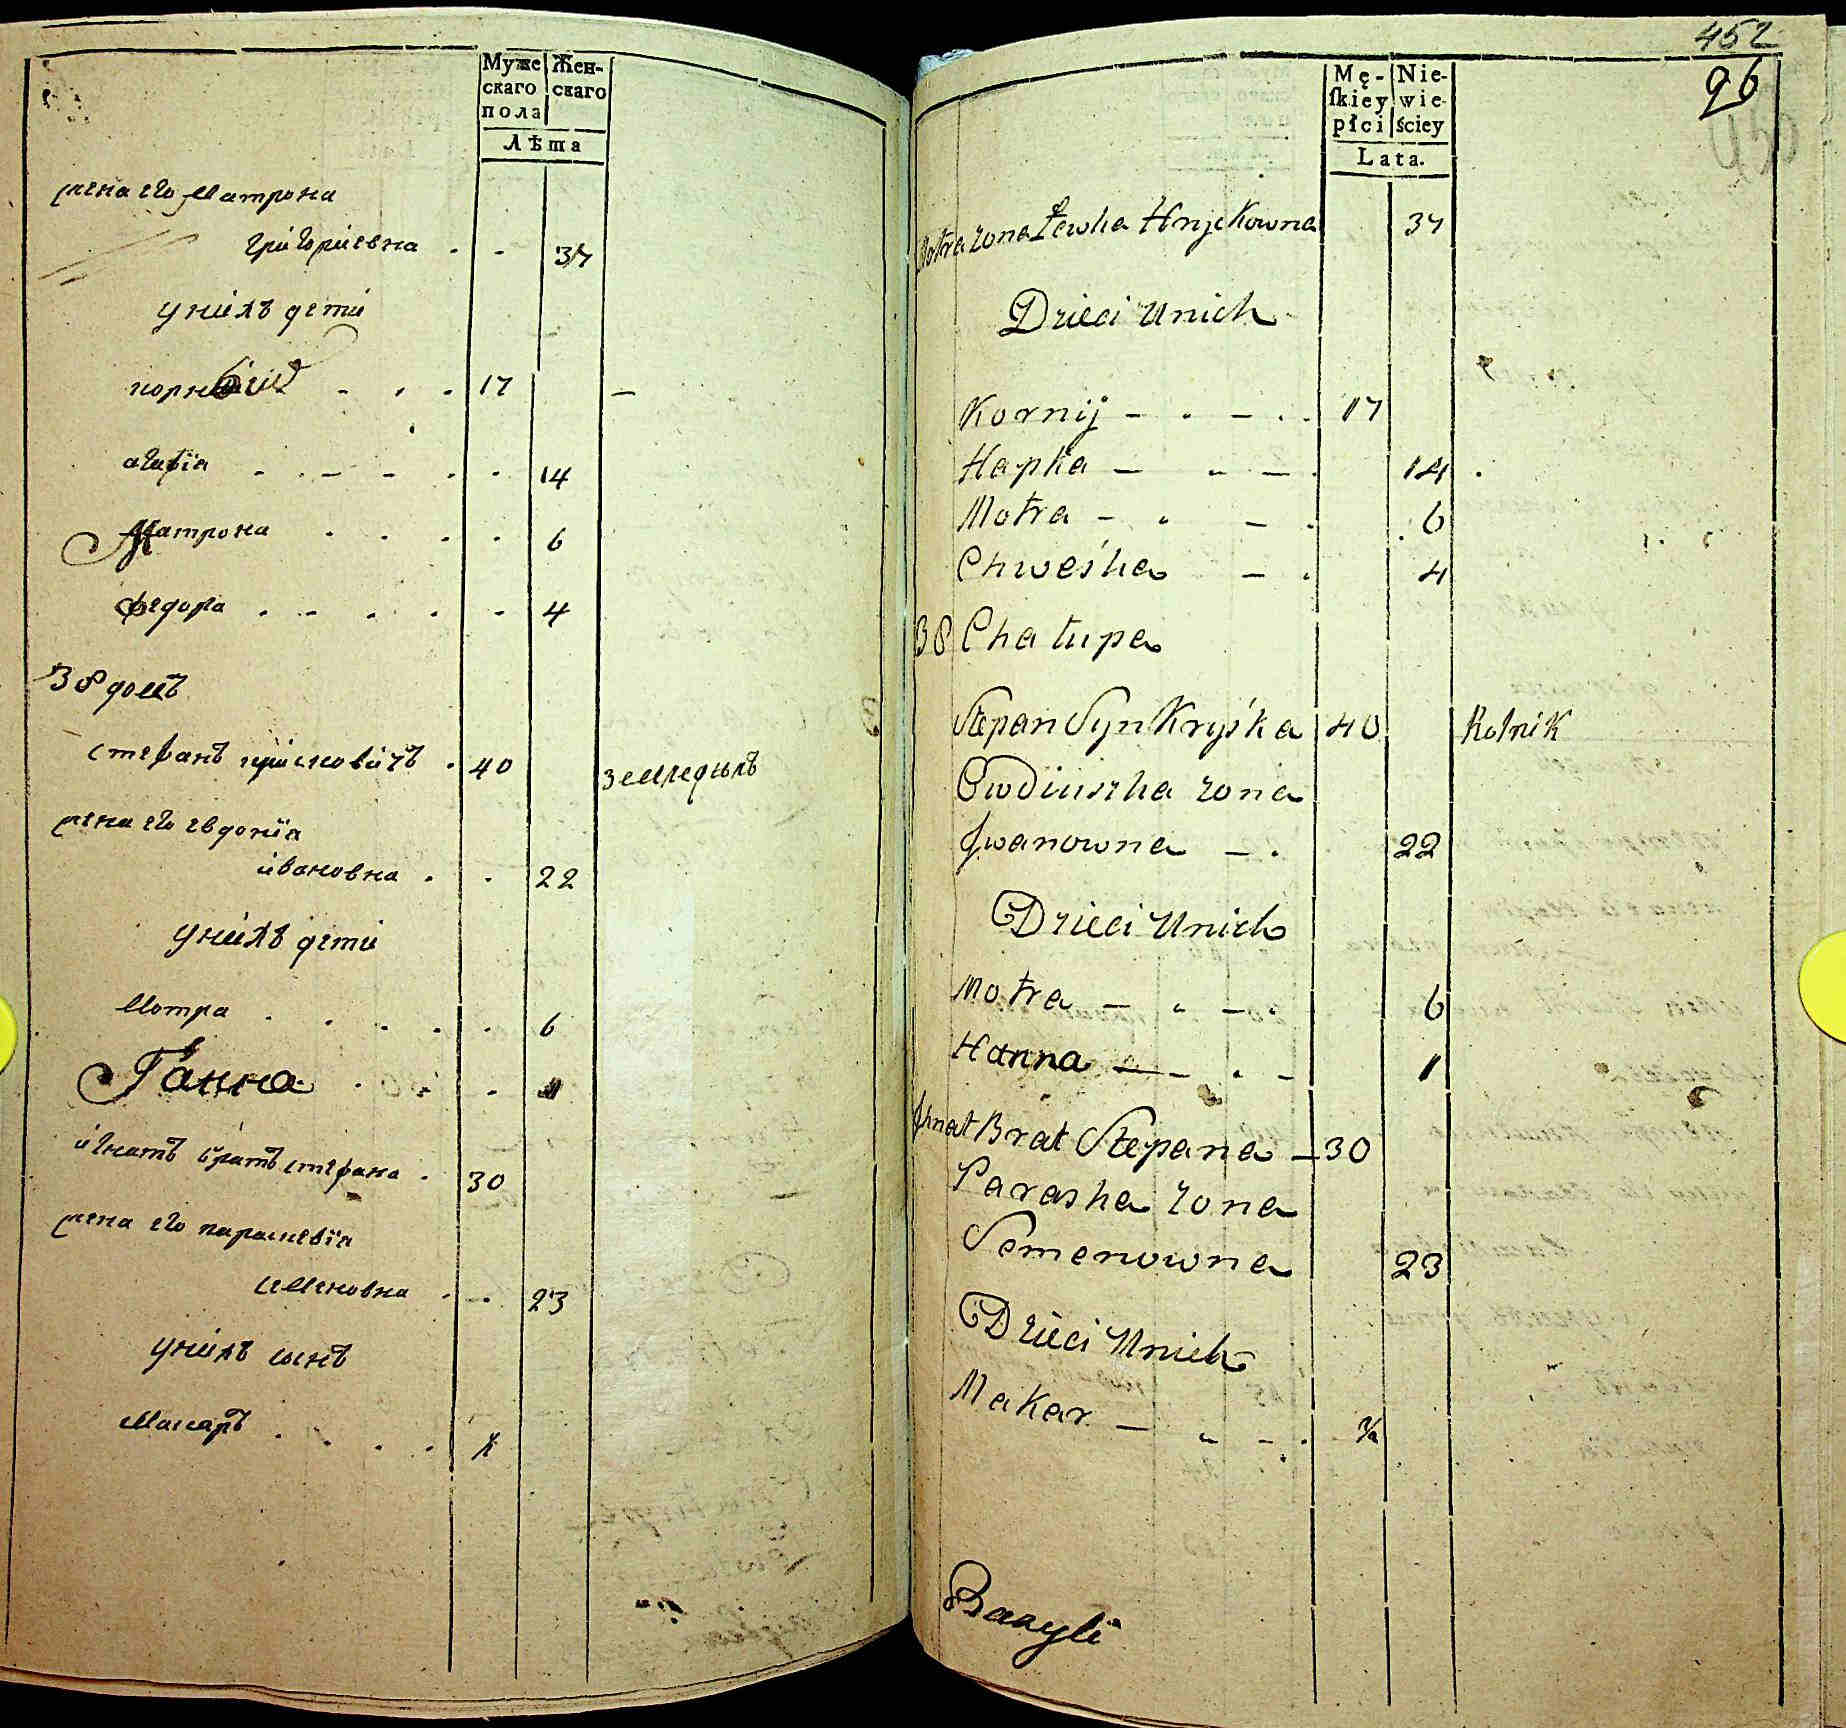 Муже Жен-
скаго скаго
пола
Лѣта
жена его Матрона
григориевна . - 37
у нихъ дети
корнѣй - . . 17 -
агафїа . - - . . 14
Матрона . . . . 6
федора . - . . - 4
38 домъ
стефанъ крисковичъ . 40 земледелъ
жена его евдокїа
ивановна . . 22
у нихъ дети
Мотра . . . . . 6
Ганна . . . 1
игнатъ братъ стефана . 30
жена его параскевїа
семеновна . . 23
у нихъ сынъ
Макаръ . . . .
452
96
Mę- Nie-
skiey wie-
płci ściey
Lata.
Motra zona Łewka Hryckowna 37
Dzieci Unich
Kornij - . - . . 17
Hapka - „ - . 14
Motra - „ - . 6
Chweśka - . 4
38 Chałupa
Stepan Syn Kryśka 40 Rolnik
Owdiuszka zona
Jwanowna - . 22
Dzieci Unich
Motra - „ - . 6
Hanna - - . - 1
Jhnat Brat Stepana - 30
Paraska zona
Semenowna 23
Dzieci Unich
Makar - „ - .
Bazyli